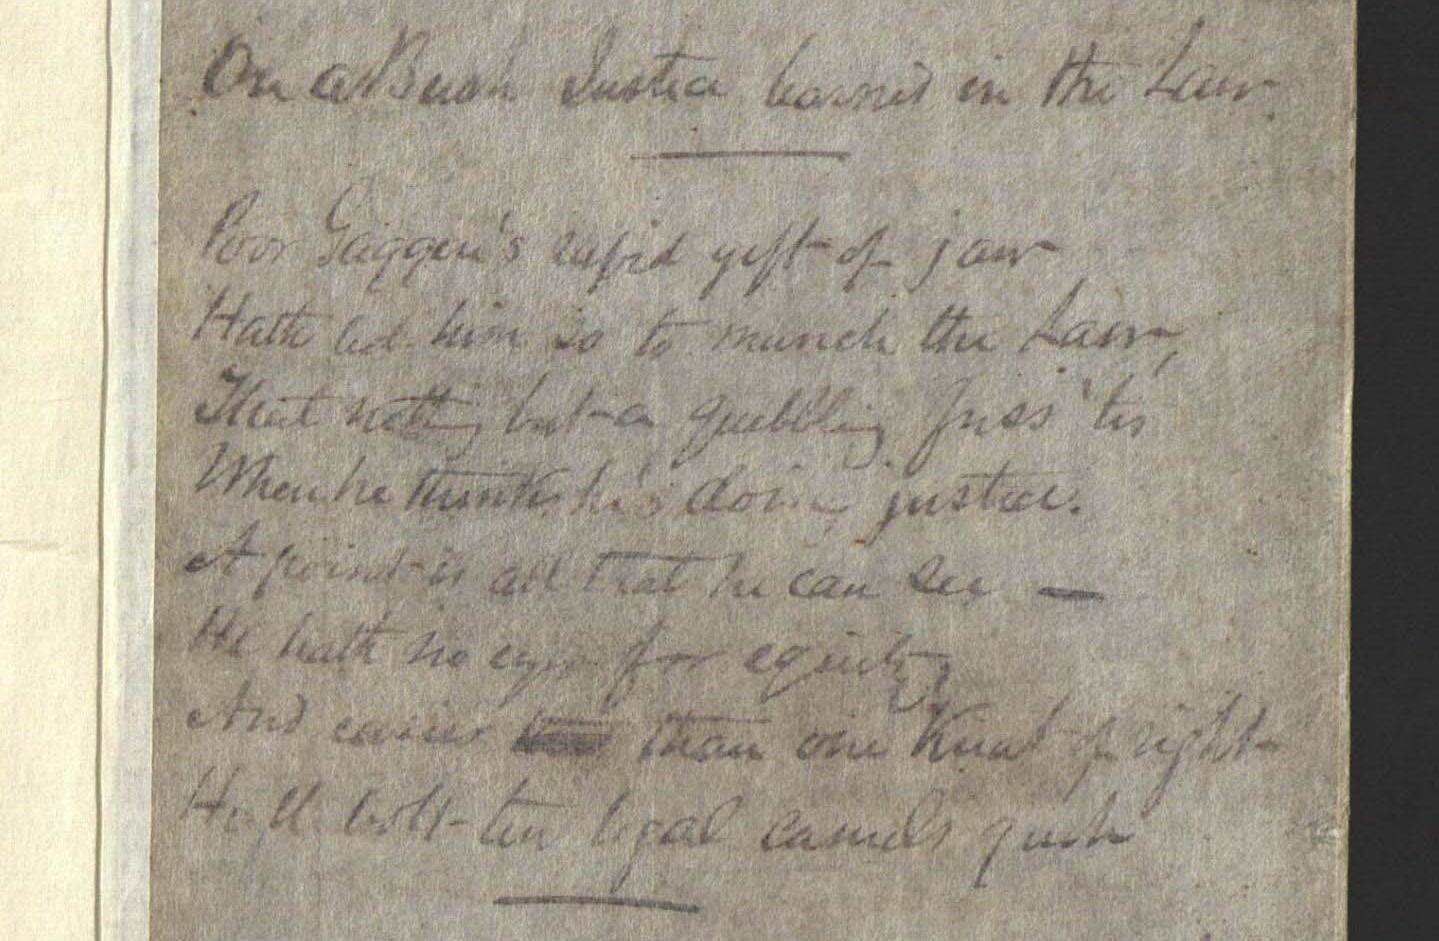 On a Bush Justice learned in the Law.
Poor 's rapid gift of jaw
Hath led him so to munch the Law,
That nothing but a quibbling fuss 'tis
When he thinks he's doing justice.
A point is all that he can see —
He hath no eyes for equity
And easier than one of right
He'll bolt ten legal camels quite